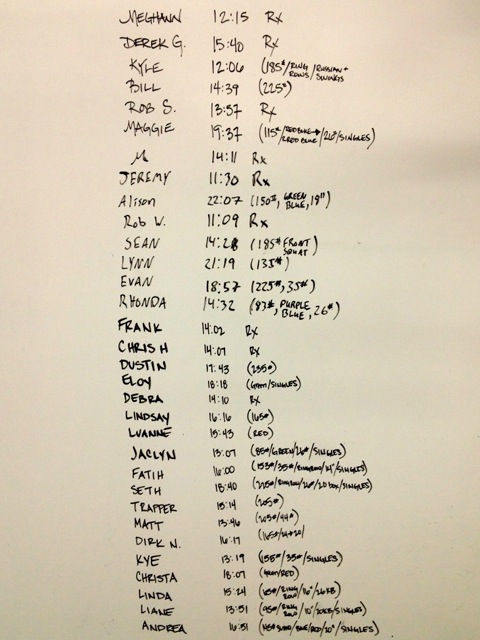 MEGHANN 12:15 Rx
DEREK G. 15:40 Rx
KYLE 12:06 (185#/RING ROWS/RUSSIAN SWINGS
BILL 14:39 (225#)
ROB S. 13:57 Rx
MAGGIE 19:37 (115#/RED BLUE/26#/SINGLES)
M 14:11 Rx
JEREMY 11:30 Rx
Alison 22:07 (150#, GREEN BLUE, 18")
Rob W. 11:09 Rx
SEAN 14:28 (185# FRONT SQUAT)
LYNN 21:19 (135#)
EVAN 18:57 (225#, 35#)
RHONDA 14:32 (83#, PURPLE BLUE, 26#)
FRANK 14:02 Rx
CHRIS H 14:07 Rx
DUSTIN 17:43 (235#)
ELOY 18:18 (Green/SINGLES)
DEBRA 14:10 Rx
LINDSAY 16:16 (165#)
LUANNE 15:43 (RED)
JACLYN 13:07 (85#/GREEN/26#/SINGLES)
FATIH 16:00 (153#/35#/SINGLES)
SETH 18:40 (225#/26#/20 BOX/SINGLES)
TRAPPER 15:14 (205#)
MATT 13:46 (205#/44#)
DIRK N. 16:17 (165#
KYE 13:19 (155#/35#/SINGLES)
CHRISTA 18:07 (Green/RED)
LINDA 15:24 (65#/RING ROW/16"/26KB)
LIANE 13:51 (95#/RING ROW/10"/20KB/SINGLES)
ANDREA 16:51 (BLUE/RED/20"/SINGLES)